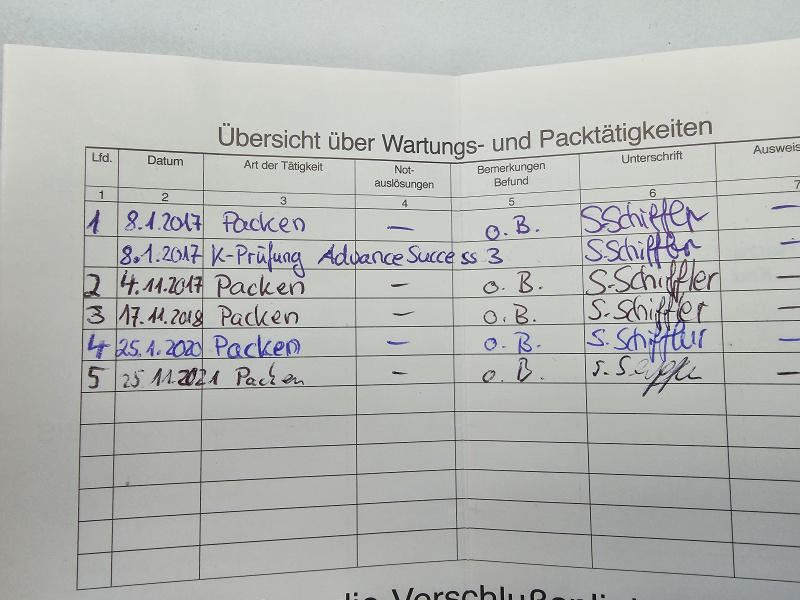 Übersicht über Wartungs- und Packtätigkeiten
Lfd. Datum Art der Tätigkeit Not- auslösungen Bemerkungen Befund Unterschrift Ausweis
1 2 3 4 5 6 7
1 8.1.2017 Packen — o.B. S.Schiffler —
8.1.2017 K-Prüfung Advance Success 3 S.Schiffler —
2 4.11.2017 Packen — o.B. S.Schiffler —
3 17.11.2018 Packen — o.B. S.Schiffler —
4 25.1.2020 Packen — o.B. S.Schiffler —
5 25.11.2021 Packen — o.B. —